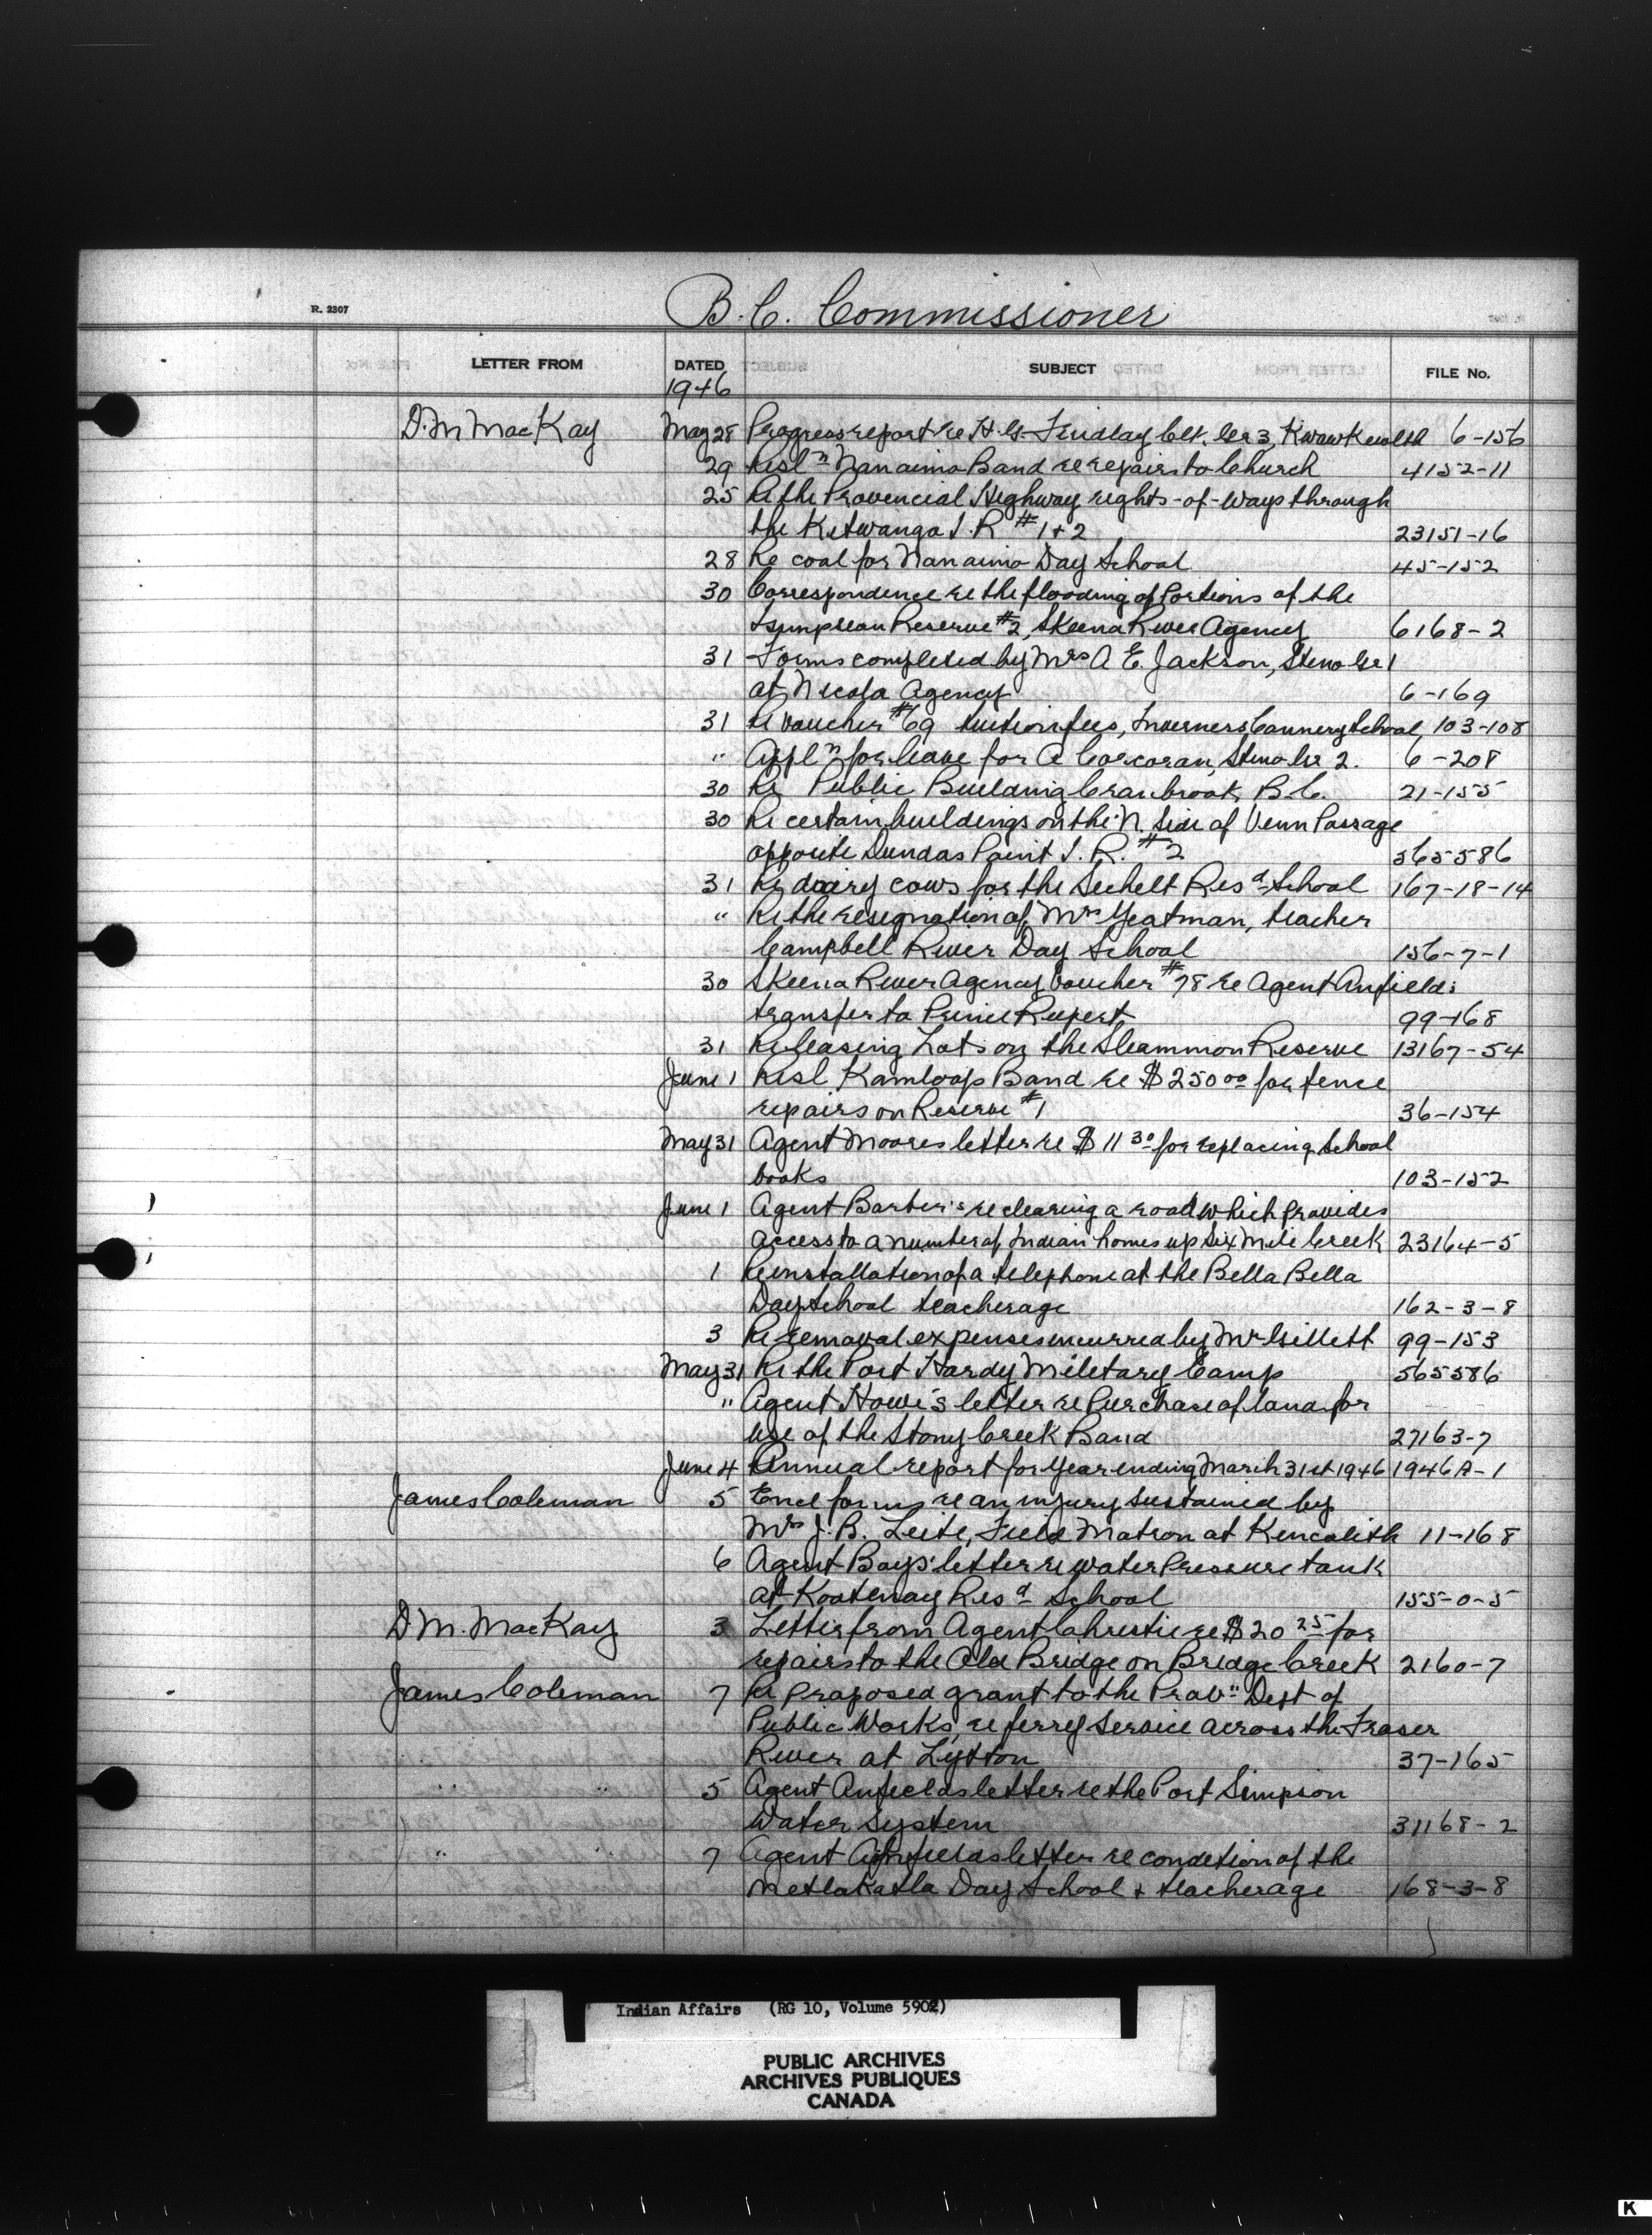 R. 2307
B.C. Commissioner
LETTER FROM DATED SUBJECT FILE No.
1946
D.M MacKay May 28 Progress report re H.G. Findlay Clk. Gr 3, Kwawkewlth 6-156
29 Resl n Nanaimo Band re repairs to Church 4152-11
25 Re the Provencial Highway rights-of-ways through
the Kitwanga I.R #1+2 23151-16
28 Re coal for Nanaimo Day School 45-152
30 Correspondence re the flooding of Portions of the
Tsimpsean Reserve #2, Skeena River Agency 6168-2
31 Forms completed by Mrs A E. Jackson, Steno Gr 1
at Nicola Agency 6-169
31 Re voucher #69 tuition fees, Inverness Cannery School, 103-108
" Appl n for leave for A Corcoran, Steno Gr 2. 6-208
30 Re Public Building Cranbrook, B.C. 21-155
30 Re certain buildings on the N. Side of Venn Passage
opposite Dundas Point I.R. #2 565586
31 Re dairy cows for the Sechelt Res d School 167-18-14
" Re the resignation of Mrs Yeatman, teacher
Campbell River Day School 156-7-1
30 Skeena River Agency Voucher #78 re Agent Anfields
transfer to Prince Rupert 99-168
31 Re leasing Lots on the Sleammon Reserve 13167-54
June 1 Resl Kamloops Band re $250 00 for fence
repairs on Reserve #1 36-154
May 31 Agent Moores letter re $11 30 for replacing School
books 103-152
June 1 Agent Barber's re clearing a road which Provides
access to a number of Indian homes up Six Mile Creek 23164-5
1 Re installation of a telephone at the Bella Bella
Day School teacherage 162-3-8
3 Re removal expenses incurred by Mr Gillett 99-153
May 31 Re the Port Hardy Miletary Camp 565586
" Agent Howe's letter re Purchase of land for
use of the Stony Creek Band 27163-7
June 4 Annual report for Year ending March 31st 1946 1946A-1
James Coleman 5 Encl forms re an injury sustained by
Mrs J.B. Leite, Field Matron at Kincolith 11-168
6 Agent Bays' letter re water Pressure tank
at Kootenay Res d School 155-0-5
D M. MacKay 3 Letter from Agent Christie re $20 25 for
repairs to the Old Bridge on Bridge Creek 2160-7
James Coleman 7 Re Proposed grant to the Prov" Dept of
Public Works, re ferry Service across the Fraser
River at Lytton 37-165
" " 5 Agent Anfields letter re the Port Simpson
Water System 31168-2
" " 7 Agent Anfields letter re condition of the
Metlakatla Day School + teacherage 168-3-8
Indian Affairs (RG 10, Volume 5902)
PUBLIC ARCHIVES
ARCHIVES PUBLIQUES
CANADA
K